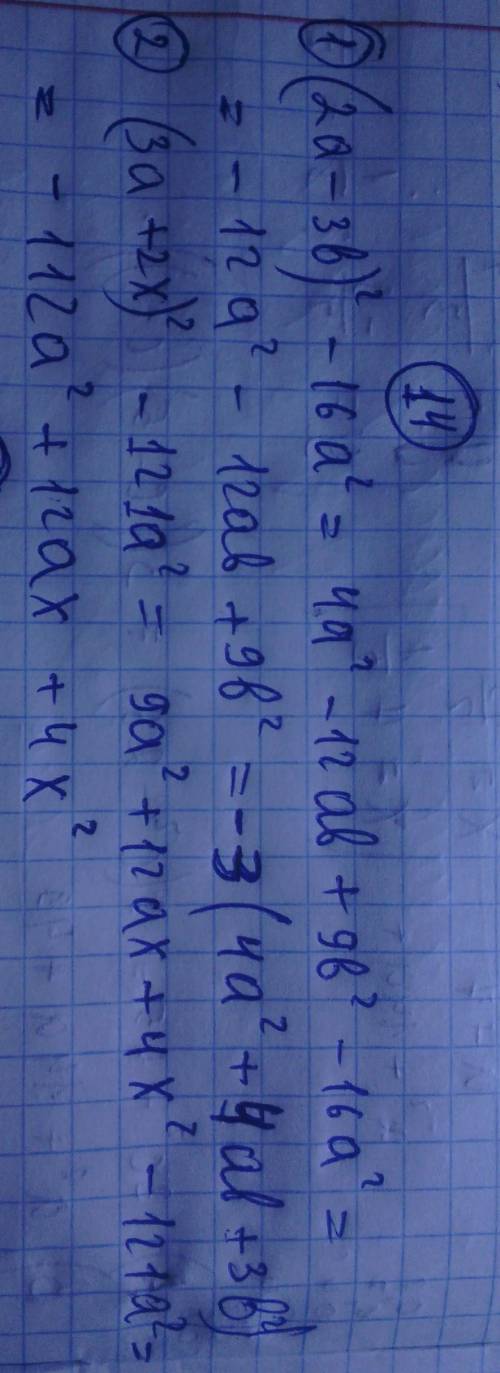 14
① (2a - 3b)² - 16a² = 4a² - 12ab + 9b² - 16a² =
= - 12a² - 12ab + 9b² = -3(4a² + 4ab + 3b²)
② (3a + 2x)² - 121a² = 9a² + 12ax + 4x² - 121a² =
= - 112a² + 12ax + 4x²